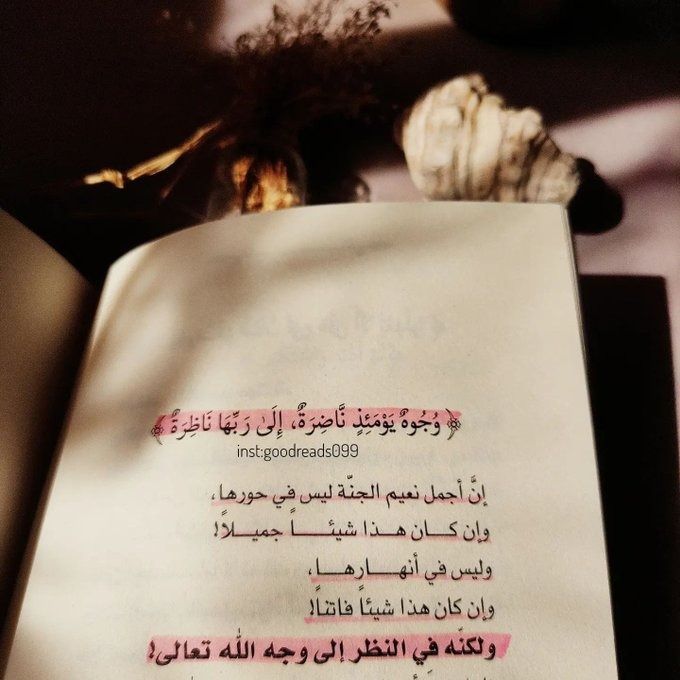 ﴿ وُجُوهٌ يَوْمَئِذٍ نَّاضِرَةٌ، إِلَىٰ رَبِّهَا نَاظِرَةٌ ﴾
inst:goodreads099
إنَّ أجمل نعيم الجنّة ليس في حورها،
وإن كـــان هـــذا شيئـــــاً جميـــلاً!
وليس في أنهـــــارهـــــا،
وإن كان هذا شيئاً فاتناً!
ولكنّه في النظر إلى وجه الله تعالى!